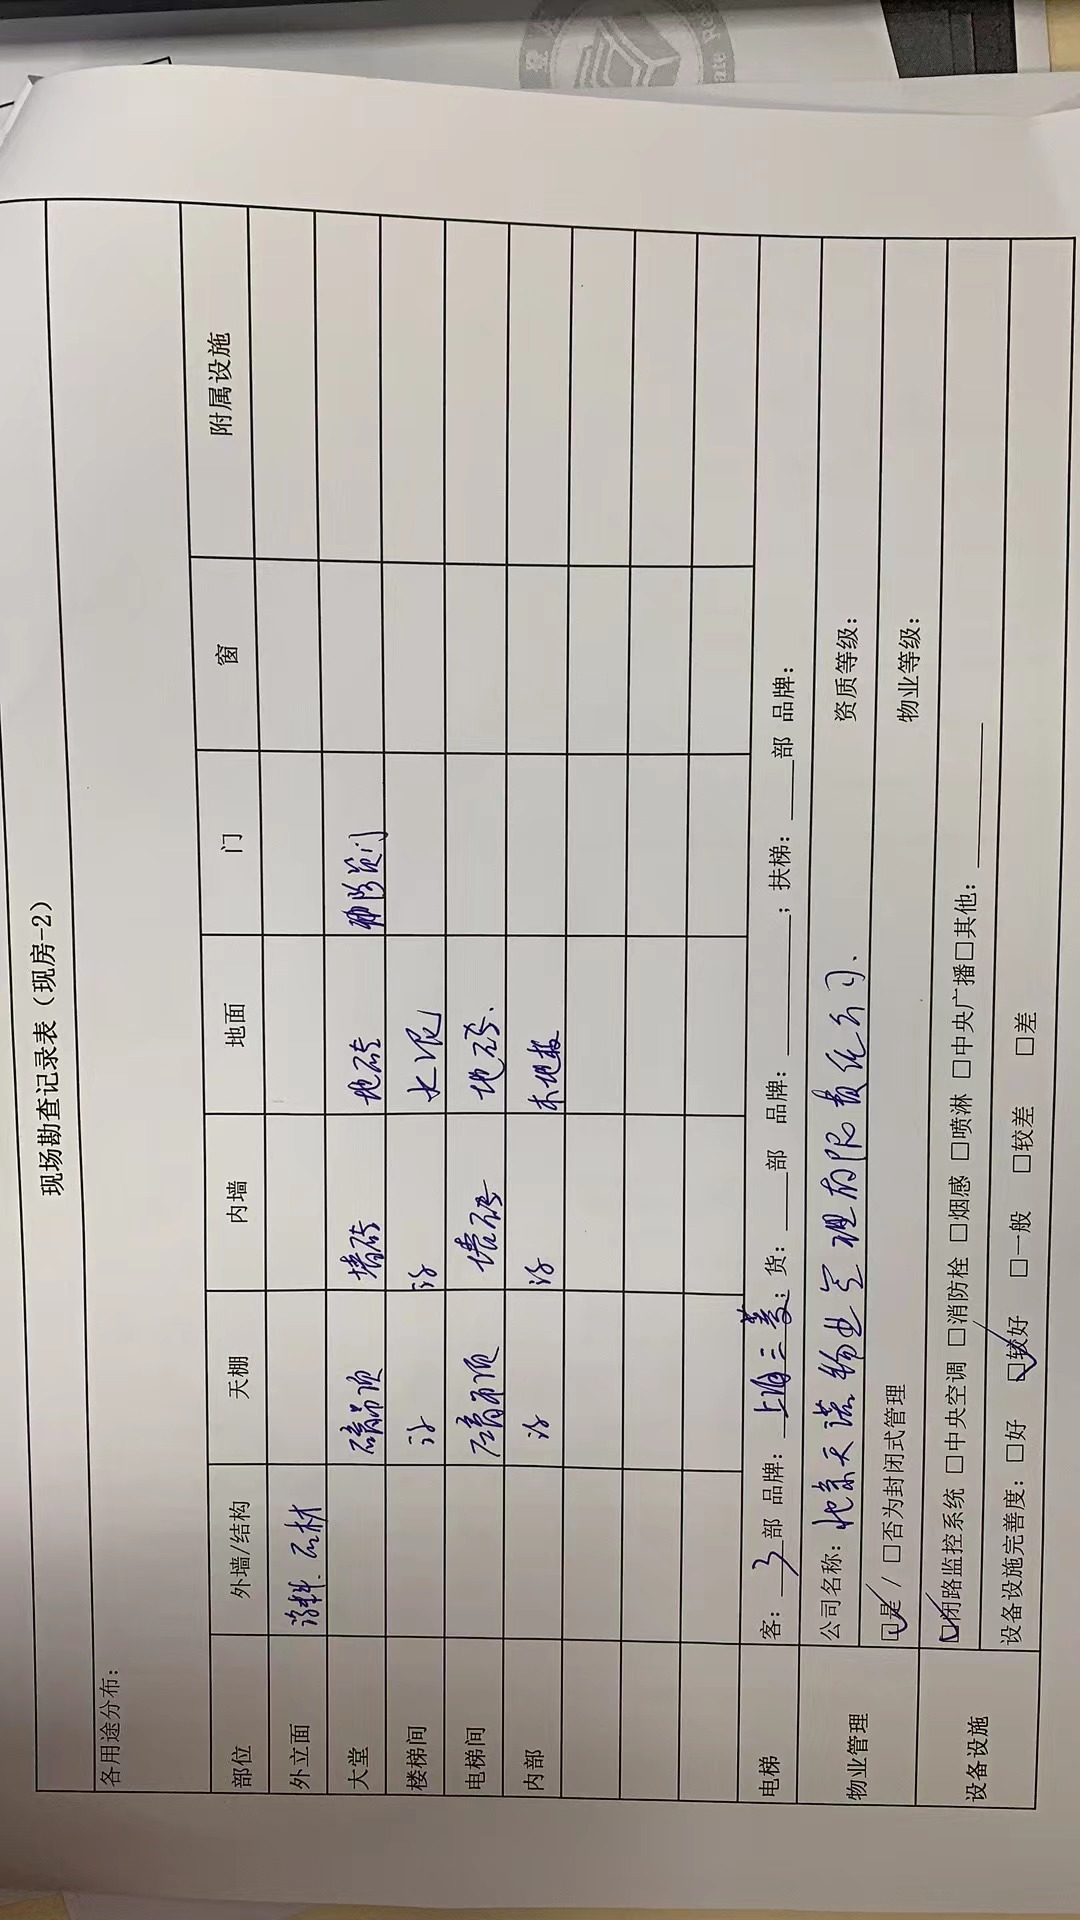 现场勘查记录表（现房-2）
各用途分布：
部位 外墙/结构 天棚 内墙 地面 门 窗 附属设施
外立面 涂料、石材
大堂 吊顶 墙砖 地砖 门
楼梯间 涂 涂 水泥
电梯间 吊顶 墙砖 地砖.
内部 涂 涂 木地板
电梯 客：3部 品牌：上海三菱；货：部 品牌：；扶梯：部 品牌：
物业管理 公司名称：北京天诺物业管理有限责任公司、 资质等级：
☑是/□否为封闭式管理 物业等级：
设备设施 ☑闭路监控系统 □中央空调 □消防栓 □烟感 □喷淋 □中央广播□其他：
设备设施完善度：□好 ☑较好 □一般 □较差 □差